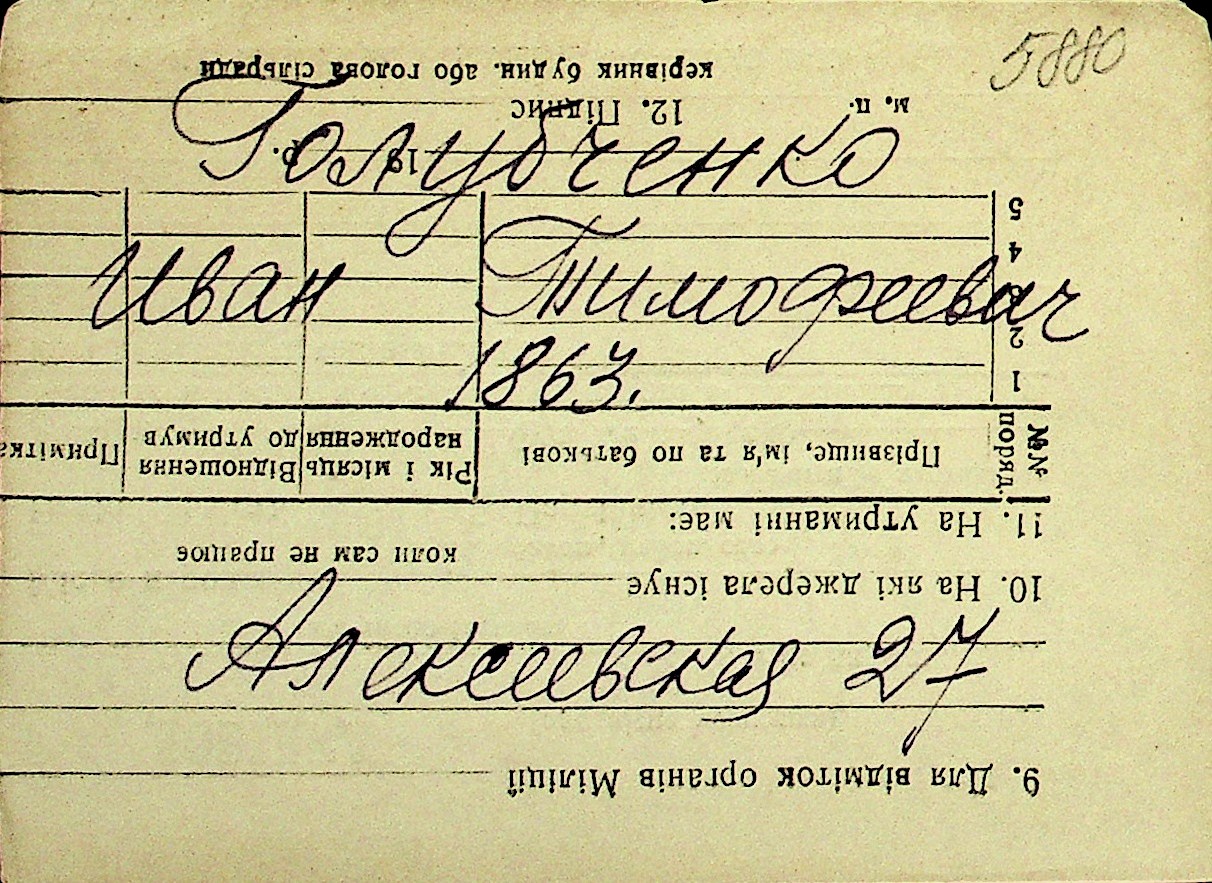 5880
Голубченко
Иван Тимофеевич
1863.
Алексеевская 27
9. Для відміток органів Міліції
10. На які джерела існує
коли сам не працює
11. На утриманні має:
№№ поряд.
Прізвище, ім'я та по батькові
Рік і місяць народження
Відношення до утримув
Примітка
1
2
4
5
19 р.
м. п.
12. Підпис
керівник будин. або голова сільради